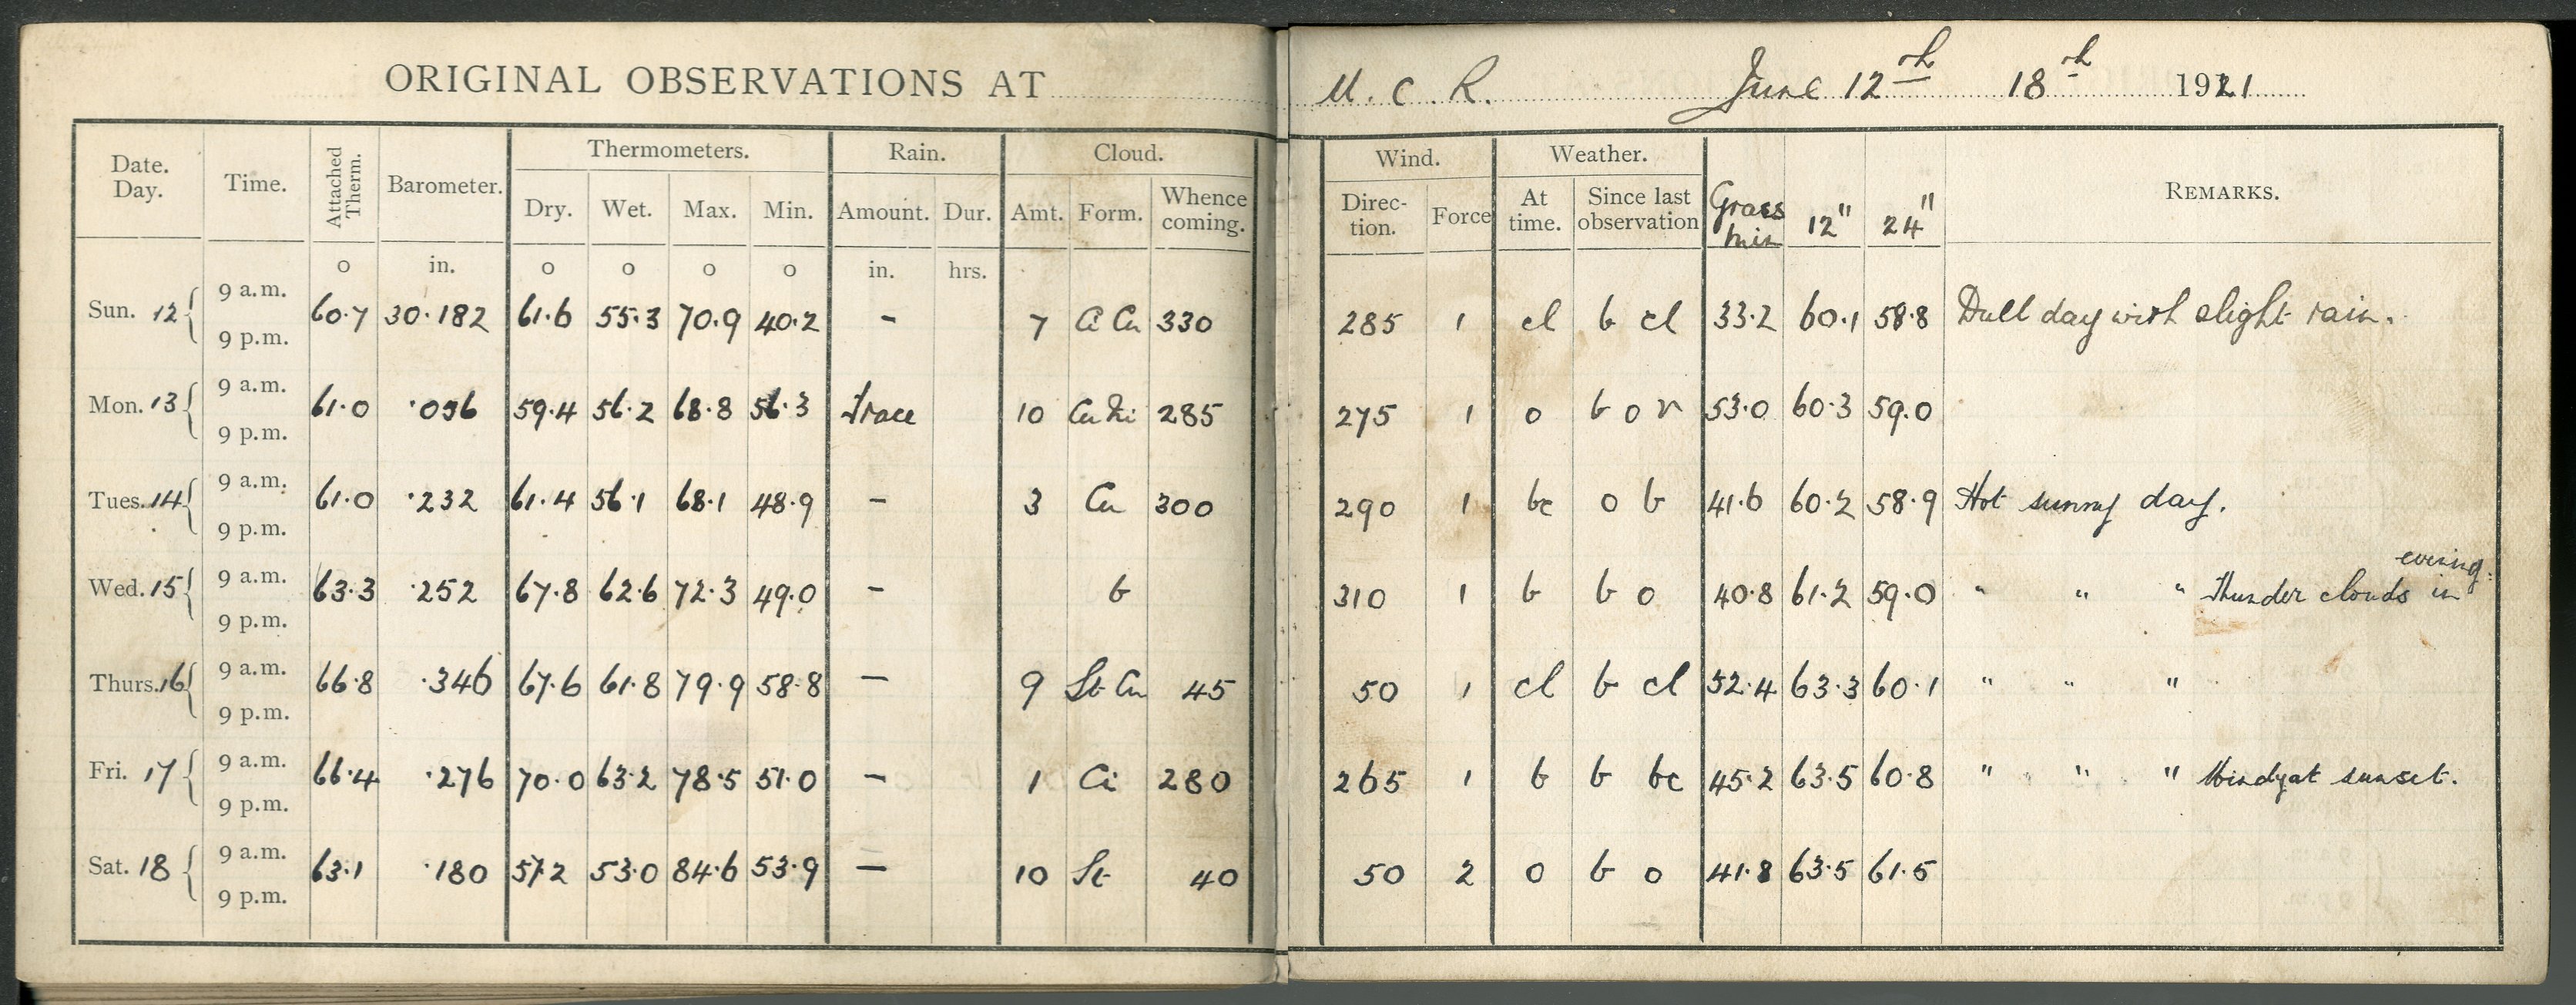 ORIGINAL OBSERVATIONS AT M. C. R. June 12th 18th 1921
Date. Day. Time. Attached Therm. Barometer. Thermometers. Rain. Cloud. Wind. Weather. Grass min 12" 24" REMARKS.
Dry. Wet. Max. Min. Amount. Dur. Amt. Form. Whence coming. Direc-tion. Force At time. Since last observation
o in. o o o o in. hrs.
9 a.m.
Sun. 12 60.7 30.182 61.6 55.3 70.9 40.2 - 7 Ci Cu 330 285 1 cl b cl 33.2 60.1 58.8 Dull day with slight rain.
9 p.m.
9 a.m.
Mon. 13 61.0 .096 59.4 56.2 68.8 56.3 Trace 10 Cu Ni 285 275 1 o b o r 53.0 60.3 59.0
9 p.m.
9 a.m.
Tues. 14 61.0 .232 61.4 56.1 68.1 48.9 - 3 Cu 300 290 1 bc o b 41.6 60.2 58.9 Hot sunny day.
9 p.m.
9 a.m.
Wed. 15 63.3 .252 67.8 62.6 72.3 49.0 - b 310 1 b b o 40.8 61.2 59.0 " " " Thunder clouds in evening.
9 p.m.
9 a.m.
Thurs. 16 66.8 .346 67.6 61.8 79.9 58.8 — 9 St Cu 45 50 1 cl b cl 52.4 63.3 60.1 " " "
9 p.m.
9 a.m.
Fri. 17 66.4 .276 70.0 63.2 78.5 51.0 - 1 Ci 280 265 1 b b bc 45.2 63.5 60.8 " " " Windy at sunset.
9 p.m.
9 a.m.
Sat. 18 63.1 .180 57.2 53.0 84.6 53.9 — 10 St 40 50 2 o b o 41.8 63.5 61.5
9 p.m.